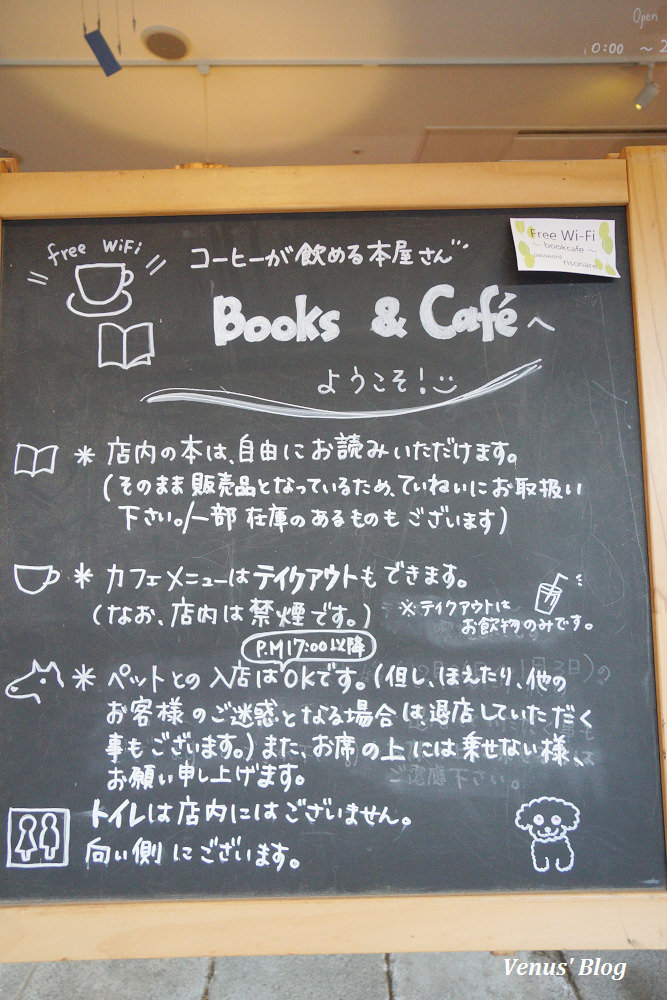 Open
10:00 ～2
free WiFi
コーヒーが飲める本屋さん
Free Wi-Fi
～ bookcafe ～
password
risonare
Books & Caféへ
ようこそ!
＊ 店内の本は、自由にお読みいただけます。
(そのまま販売品となっているため、ていねいにお取扱い
下さい。/一部在庫のあるものもございます)
＊ カフェメニューはテイクアウトもできます。
(なお、店内は禁煙です。)
※テイクアウトは
お飲物のみです。
P.M17:00以降
＊ ペットとの入店はOKです。(但し、ほえたり、他の
お客様のご迷惑となる場合は退店していただく
事もございます。)また、お席の上には乗せない様、
お願い申し上げます。
トイレは店内にはございません。
向い側にございます。
Venus' Blog